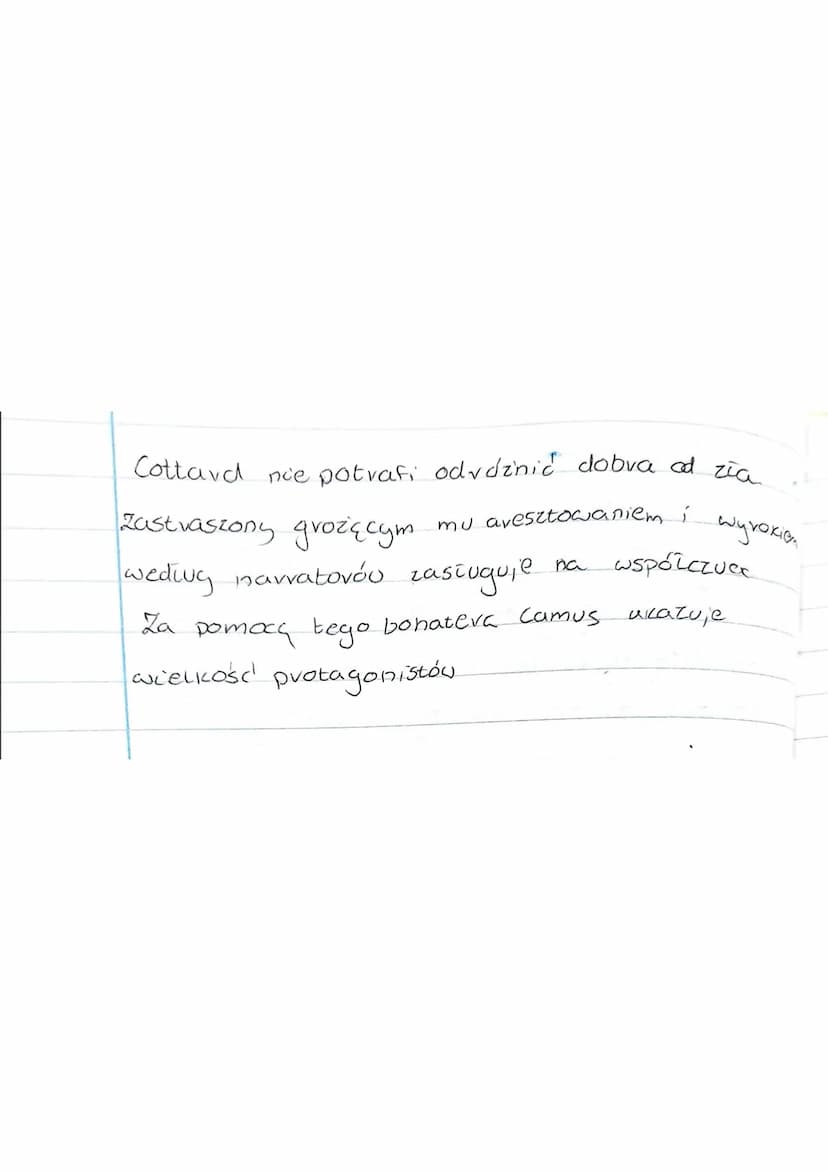 Cottard nie potrafi odrdżnić dobra od zła
Zastraszony grożącym mu aresztowaniem i wyrokiem
według narratorów zasługuje na współczuci
Za pomocą tego bohatera Camus ukazuje
wielkość protagonistów